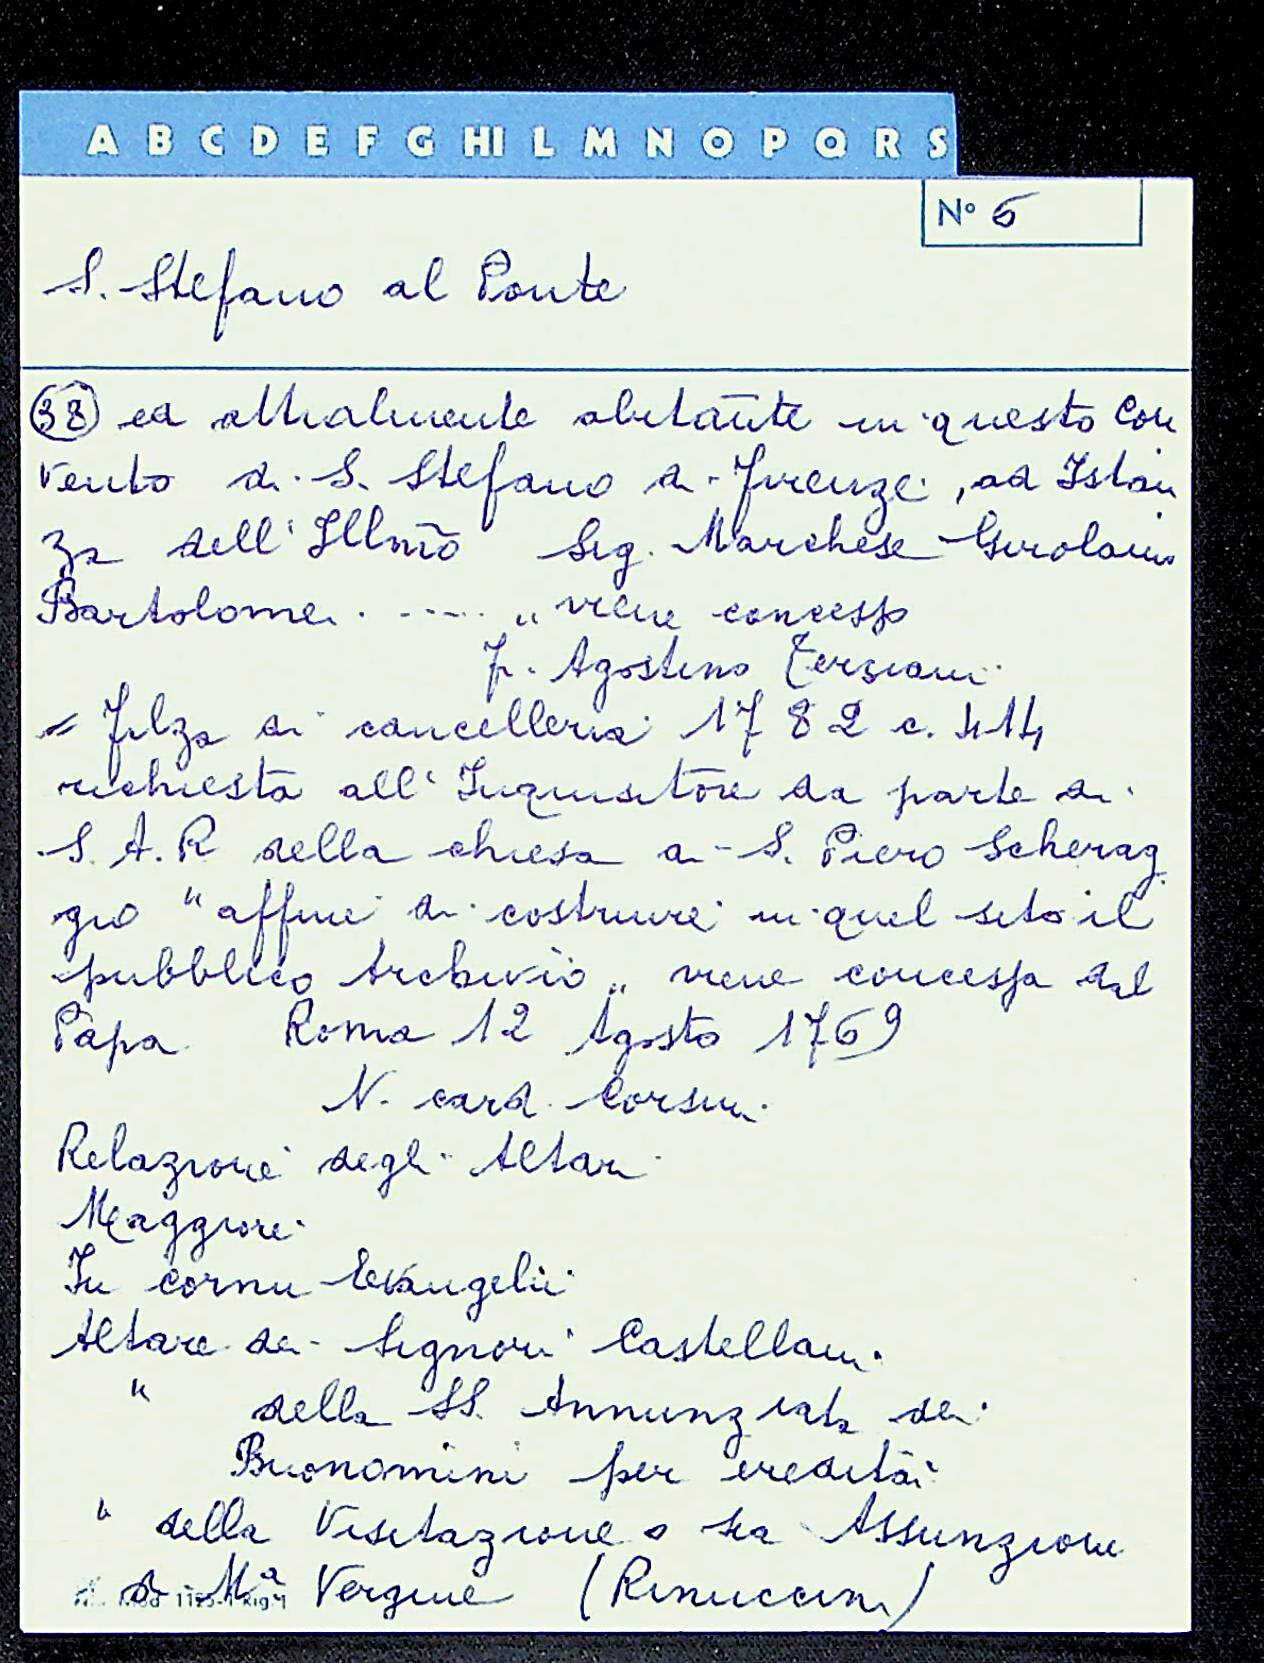 A B C D E F G HI L M N O P Q R S
N° 6
S. Stefano al Ponte
(38) ed attualmente abitante in questo Con
vento di S. Stefano di Firenze, ad Istan
za dell'Illmo Sig. Marchese Girolamo
Bartolomei ..... " viene concesso
f. Agostino Terziani
= Filza di cancelleria 1782 c. 414
richiesta all'Inquisitore da parte di
S. A. R della chiesa di S. Piero Scherag
gio "affine di costruire in quel sito il
pubblico Archivio" viene concessa dal
Papa Roma 12 Agosto 1769
N. card. Corsini
Relazione degli Altari
Maggiore
In cornu Evangelii
Altare dei Signori Castellani
" della SS. Annunziata dei
Buonomini per eredità
" della Visitazione o sia Assunzione
di Mª Vergine (Rinuccini)